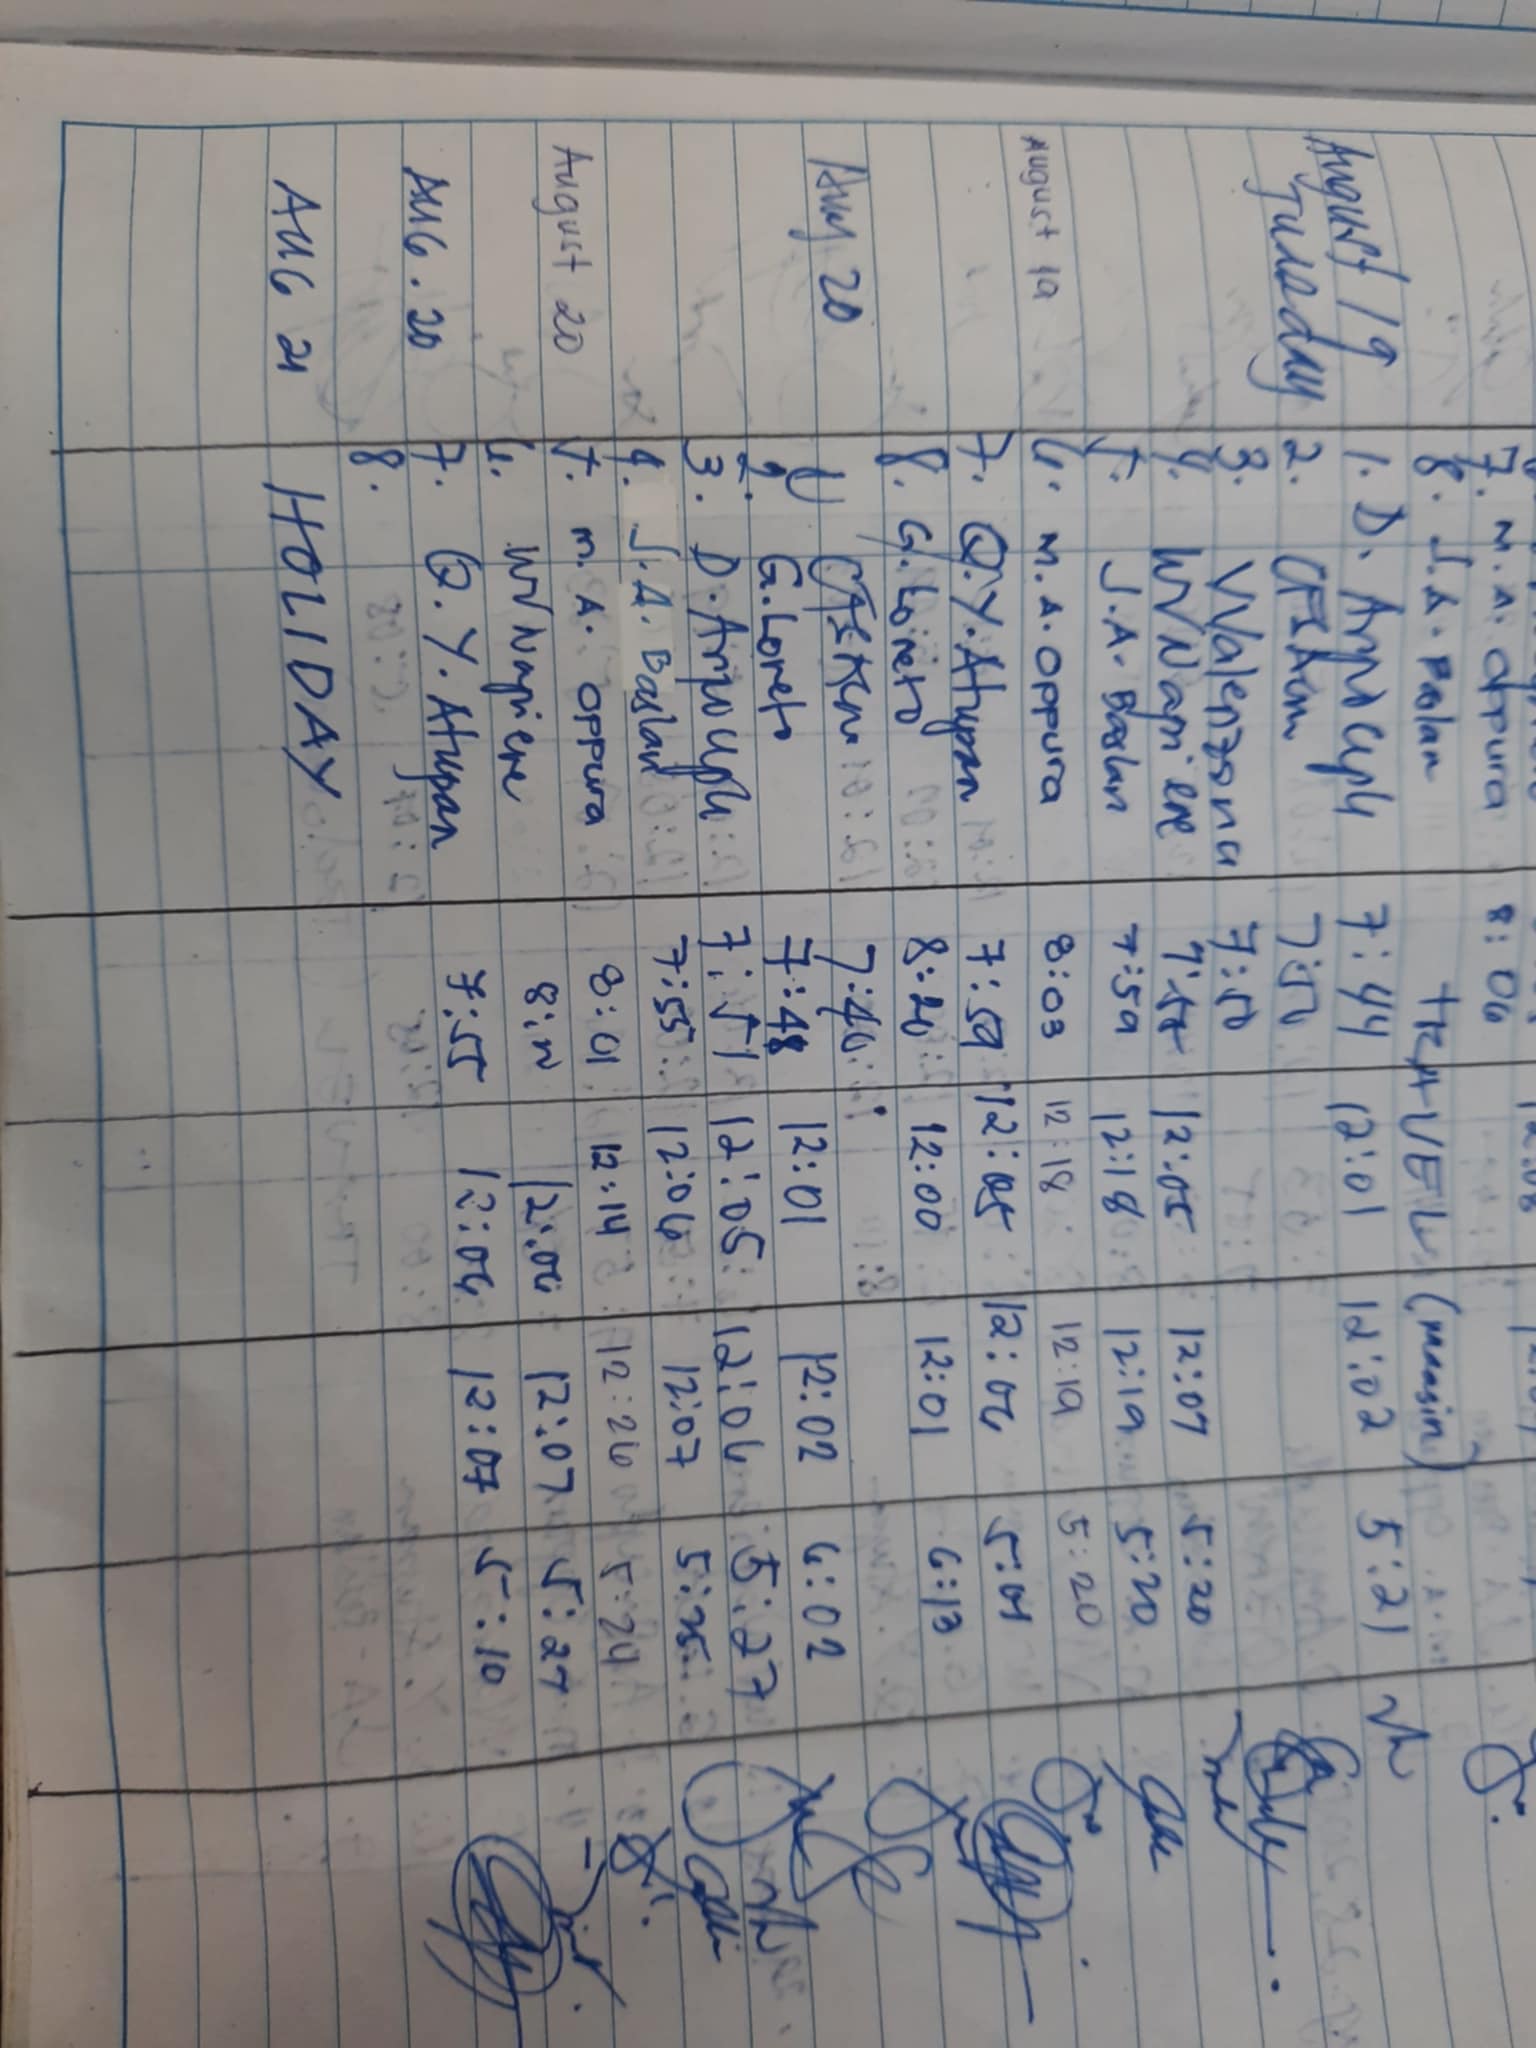 7. M.A. Oppura 8:06
8. J.A. Baslan TRAVEL (maasin)
August 19 1. D. Arpo Ceph 7:44 12:01 12:02 5:21
Tuesday 2. 7:50
3. VValenzona 7:50
4. WV Napiere 12:05 12:07 5:20
5. J.A. Baslan 7:59 12:18 12:19 5:20
August 19 6. M.A. Oppura 8:03 12:18 12:19 5:20
7. Q.Y. Atupan 7:59 12:05 12:06 5:01
8. G. Loreto 8:20 12:00 12:01 6:13
Aug 20 1 7:46
2. G. Loreto 7:48 12:01 12:02 6:02
3. D. Arpo Ceph 7:51 12:05 12:06 5:27
4. J.A. Baslan 7:55 12:06 12:07 5:25
August 20 5. M.A. Oppura 8:01 12:14 12:26 5:24
6. WV Napiere 12:06 12:07 5:27
AUG. 20 7. Q.Y. Atupan 7:55 12:06 12:07 5:10
8.
AUG 21 HOLIDAY